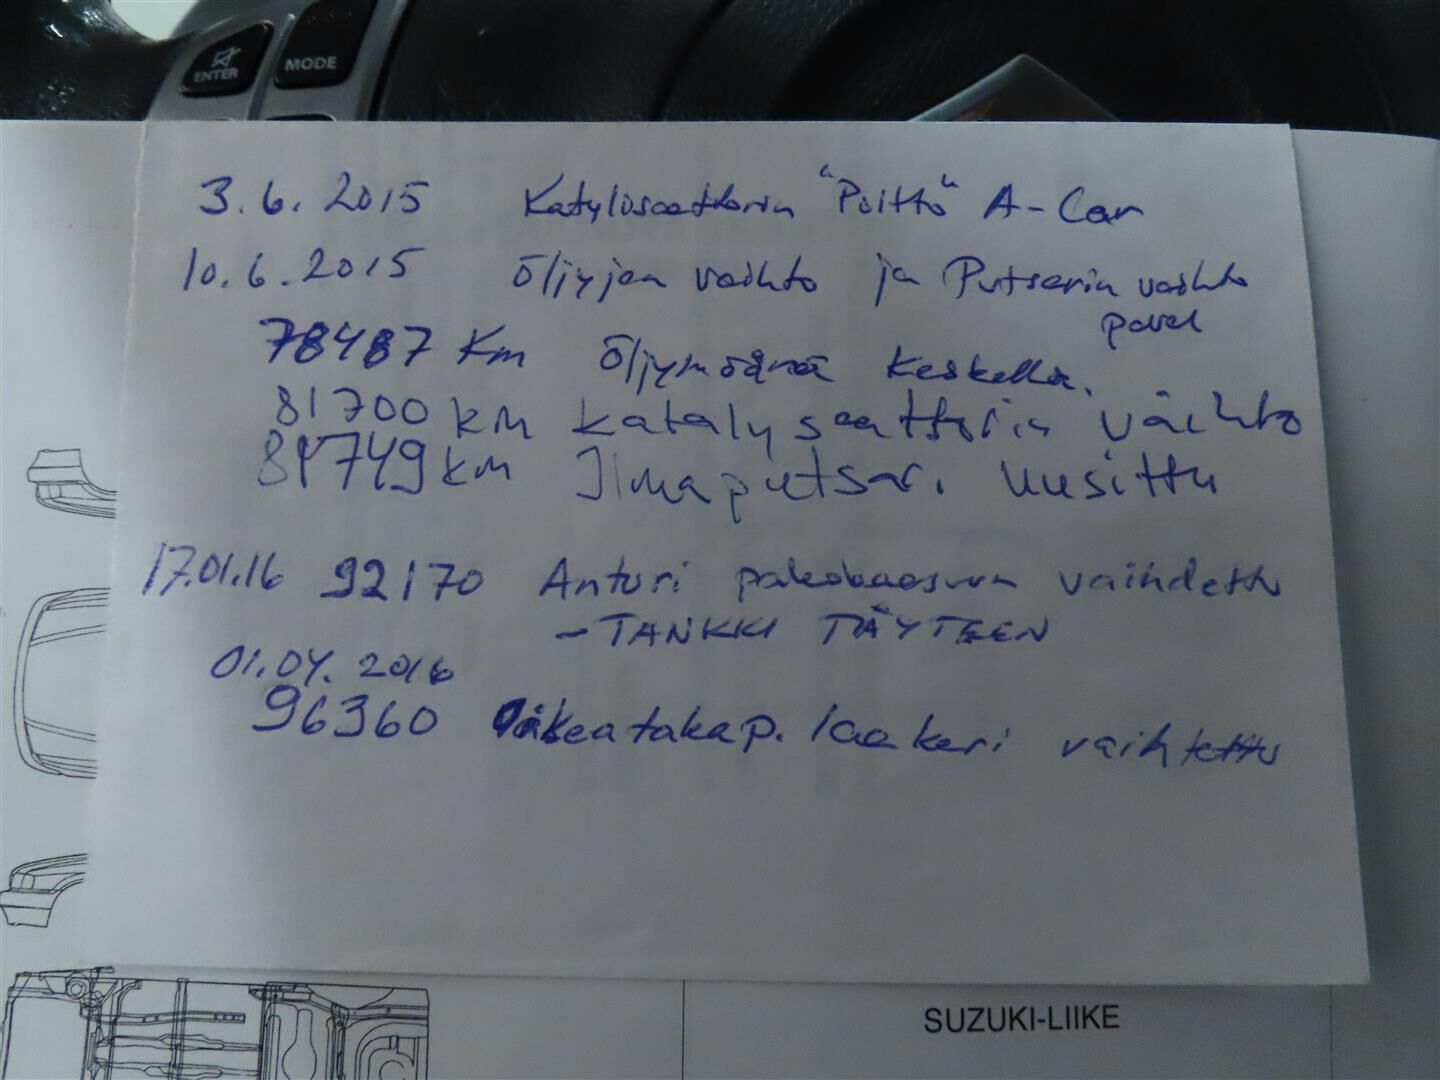 ENTER
MODE
3.6.2015 Katylisaattorin "Poltto" A-Car
10.6.2015 Öljyjen vaihto ja Putsarin vaihto
78487 Km Öljymäärä keskellä.
81700 km Katalysaattorin vaihto
84749 km Ilmaputsari Uusittu
17.01.16 92170 Anturi pakokaasun vaihdettu
- TANKKI TÄYTEEN
01.04.2016
96360 Oikea takap. laakeri vaihtettu
SUZUKI-LIIKE